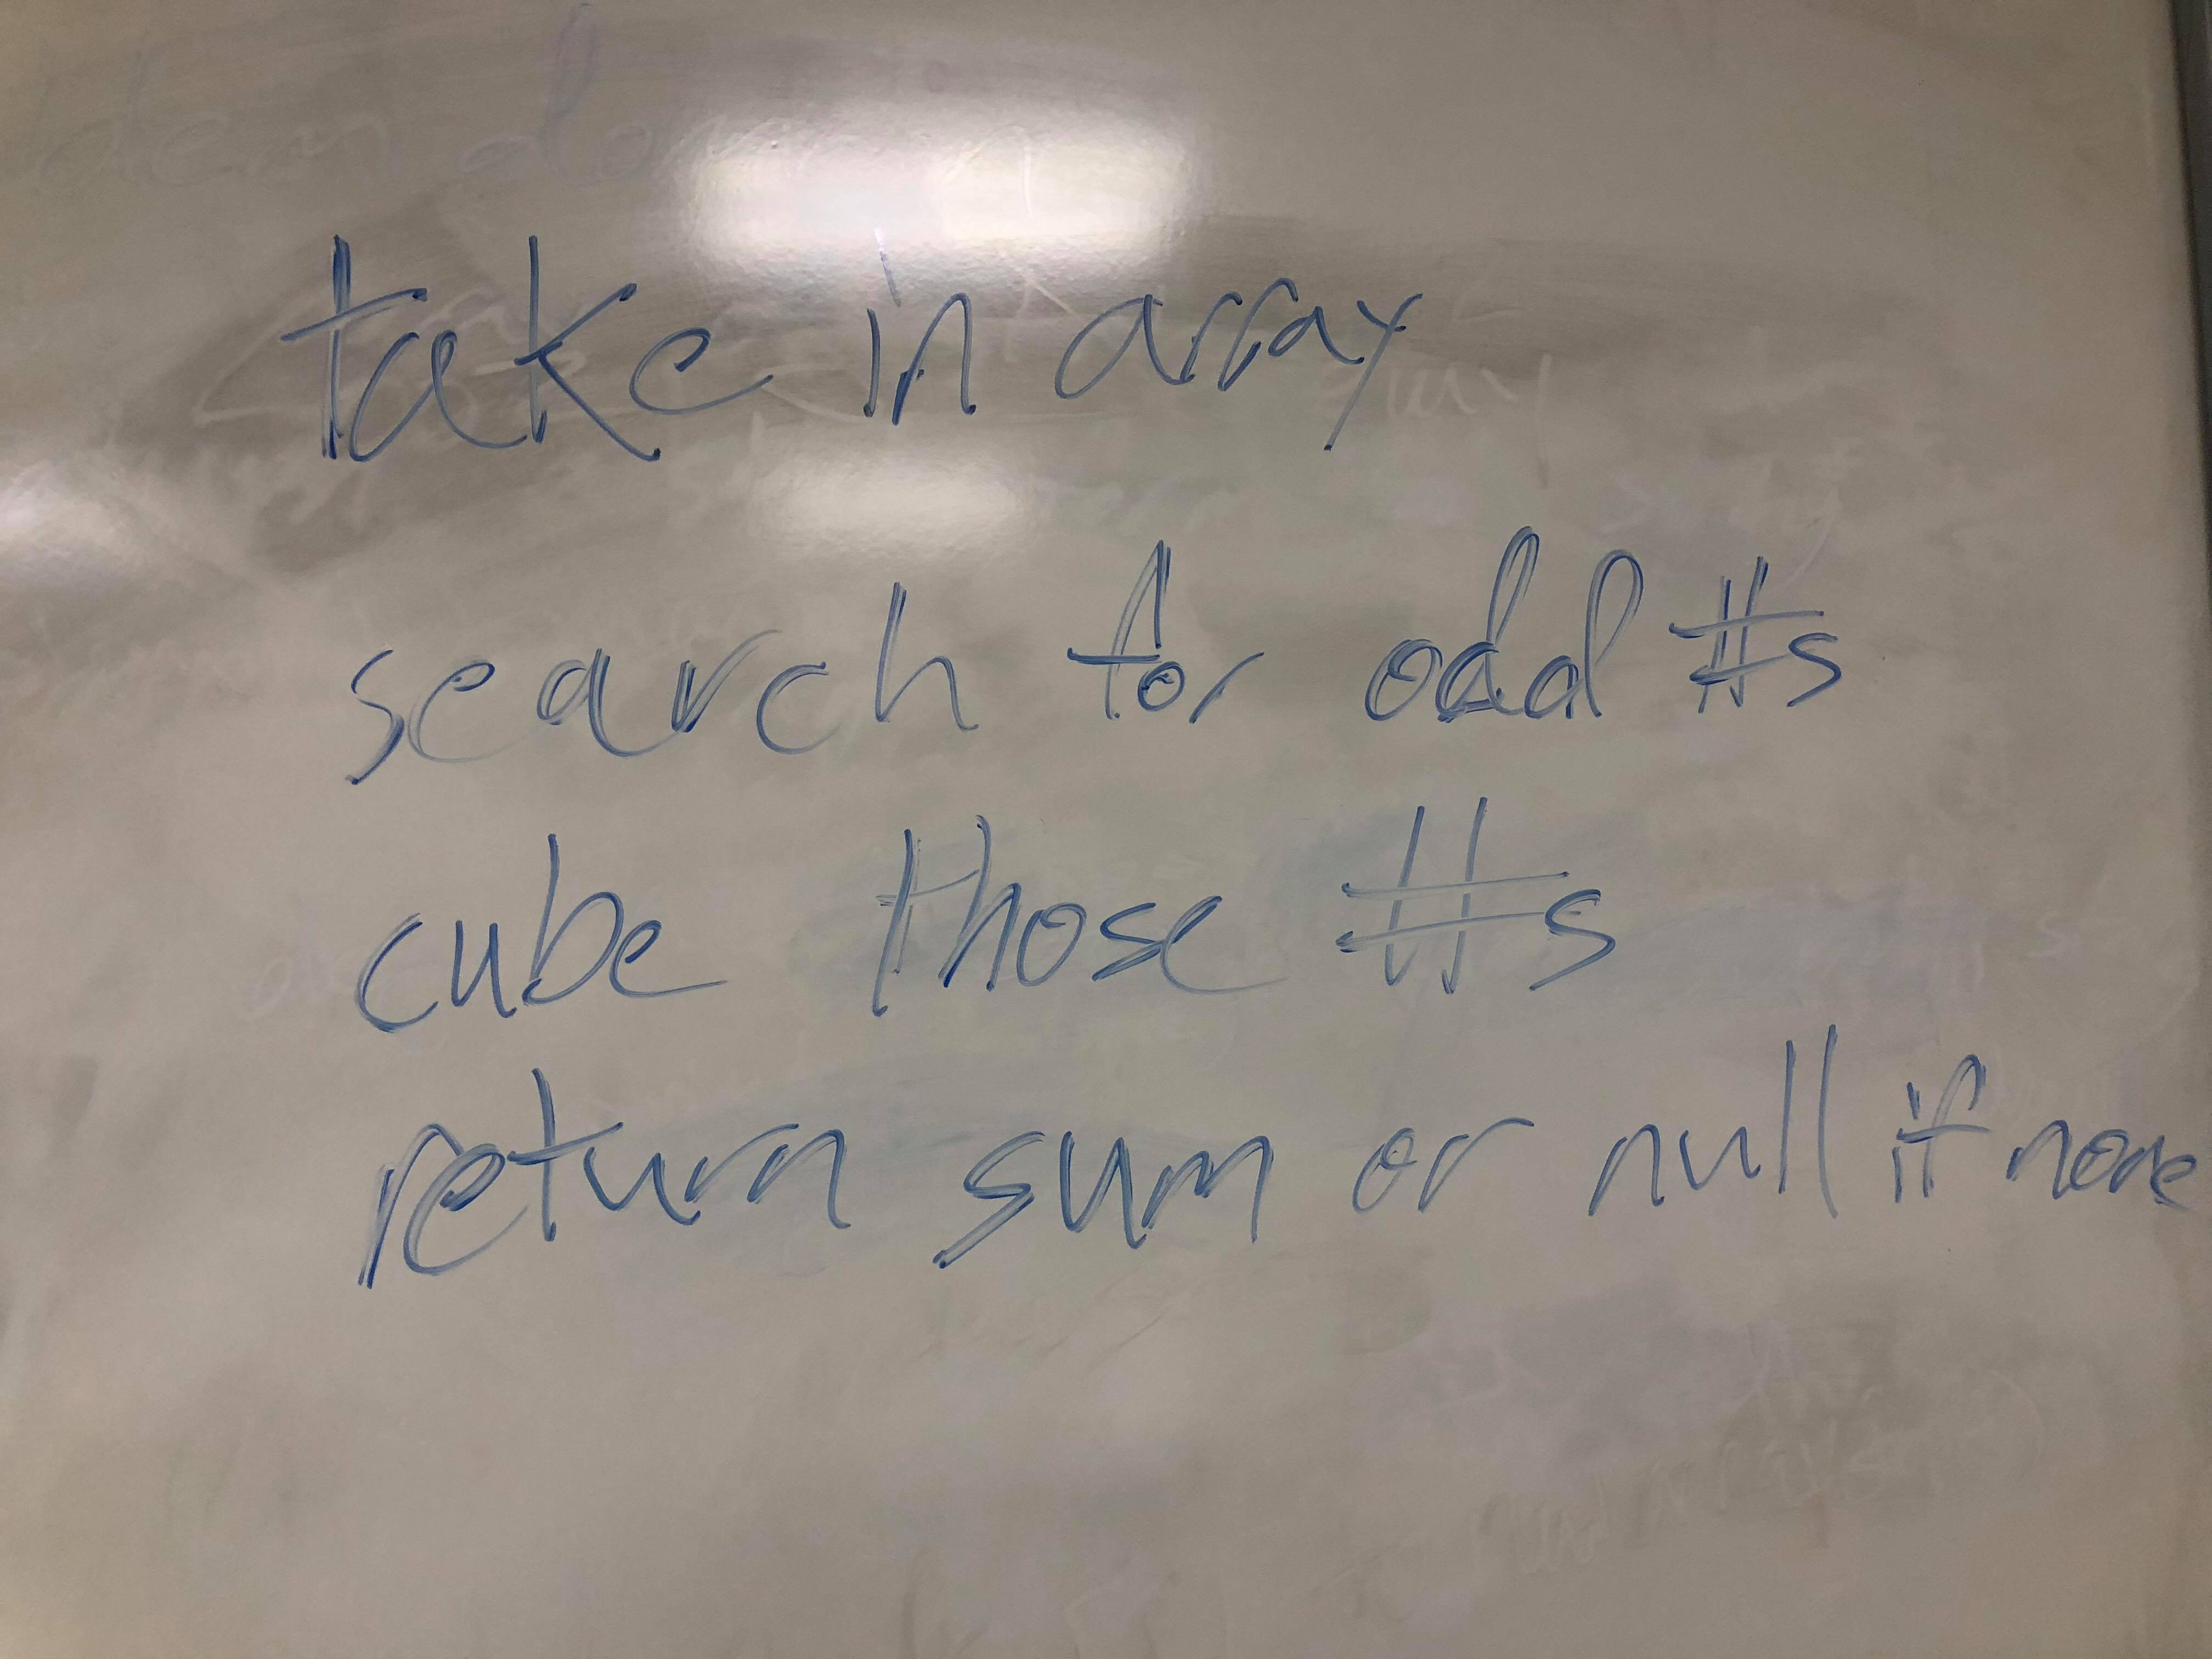 take in array
search for odd #s
cube those #s
return sum or null if none